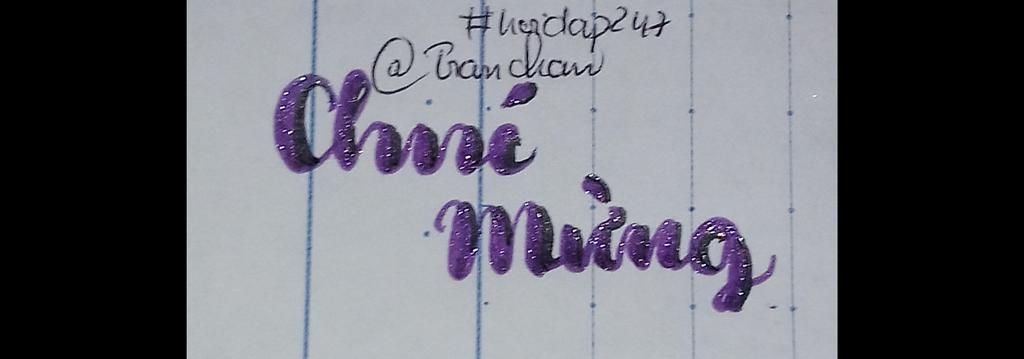 #hoidap247
@Tranchau
Chúc
Mừng